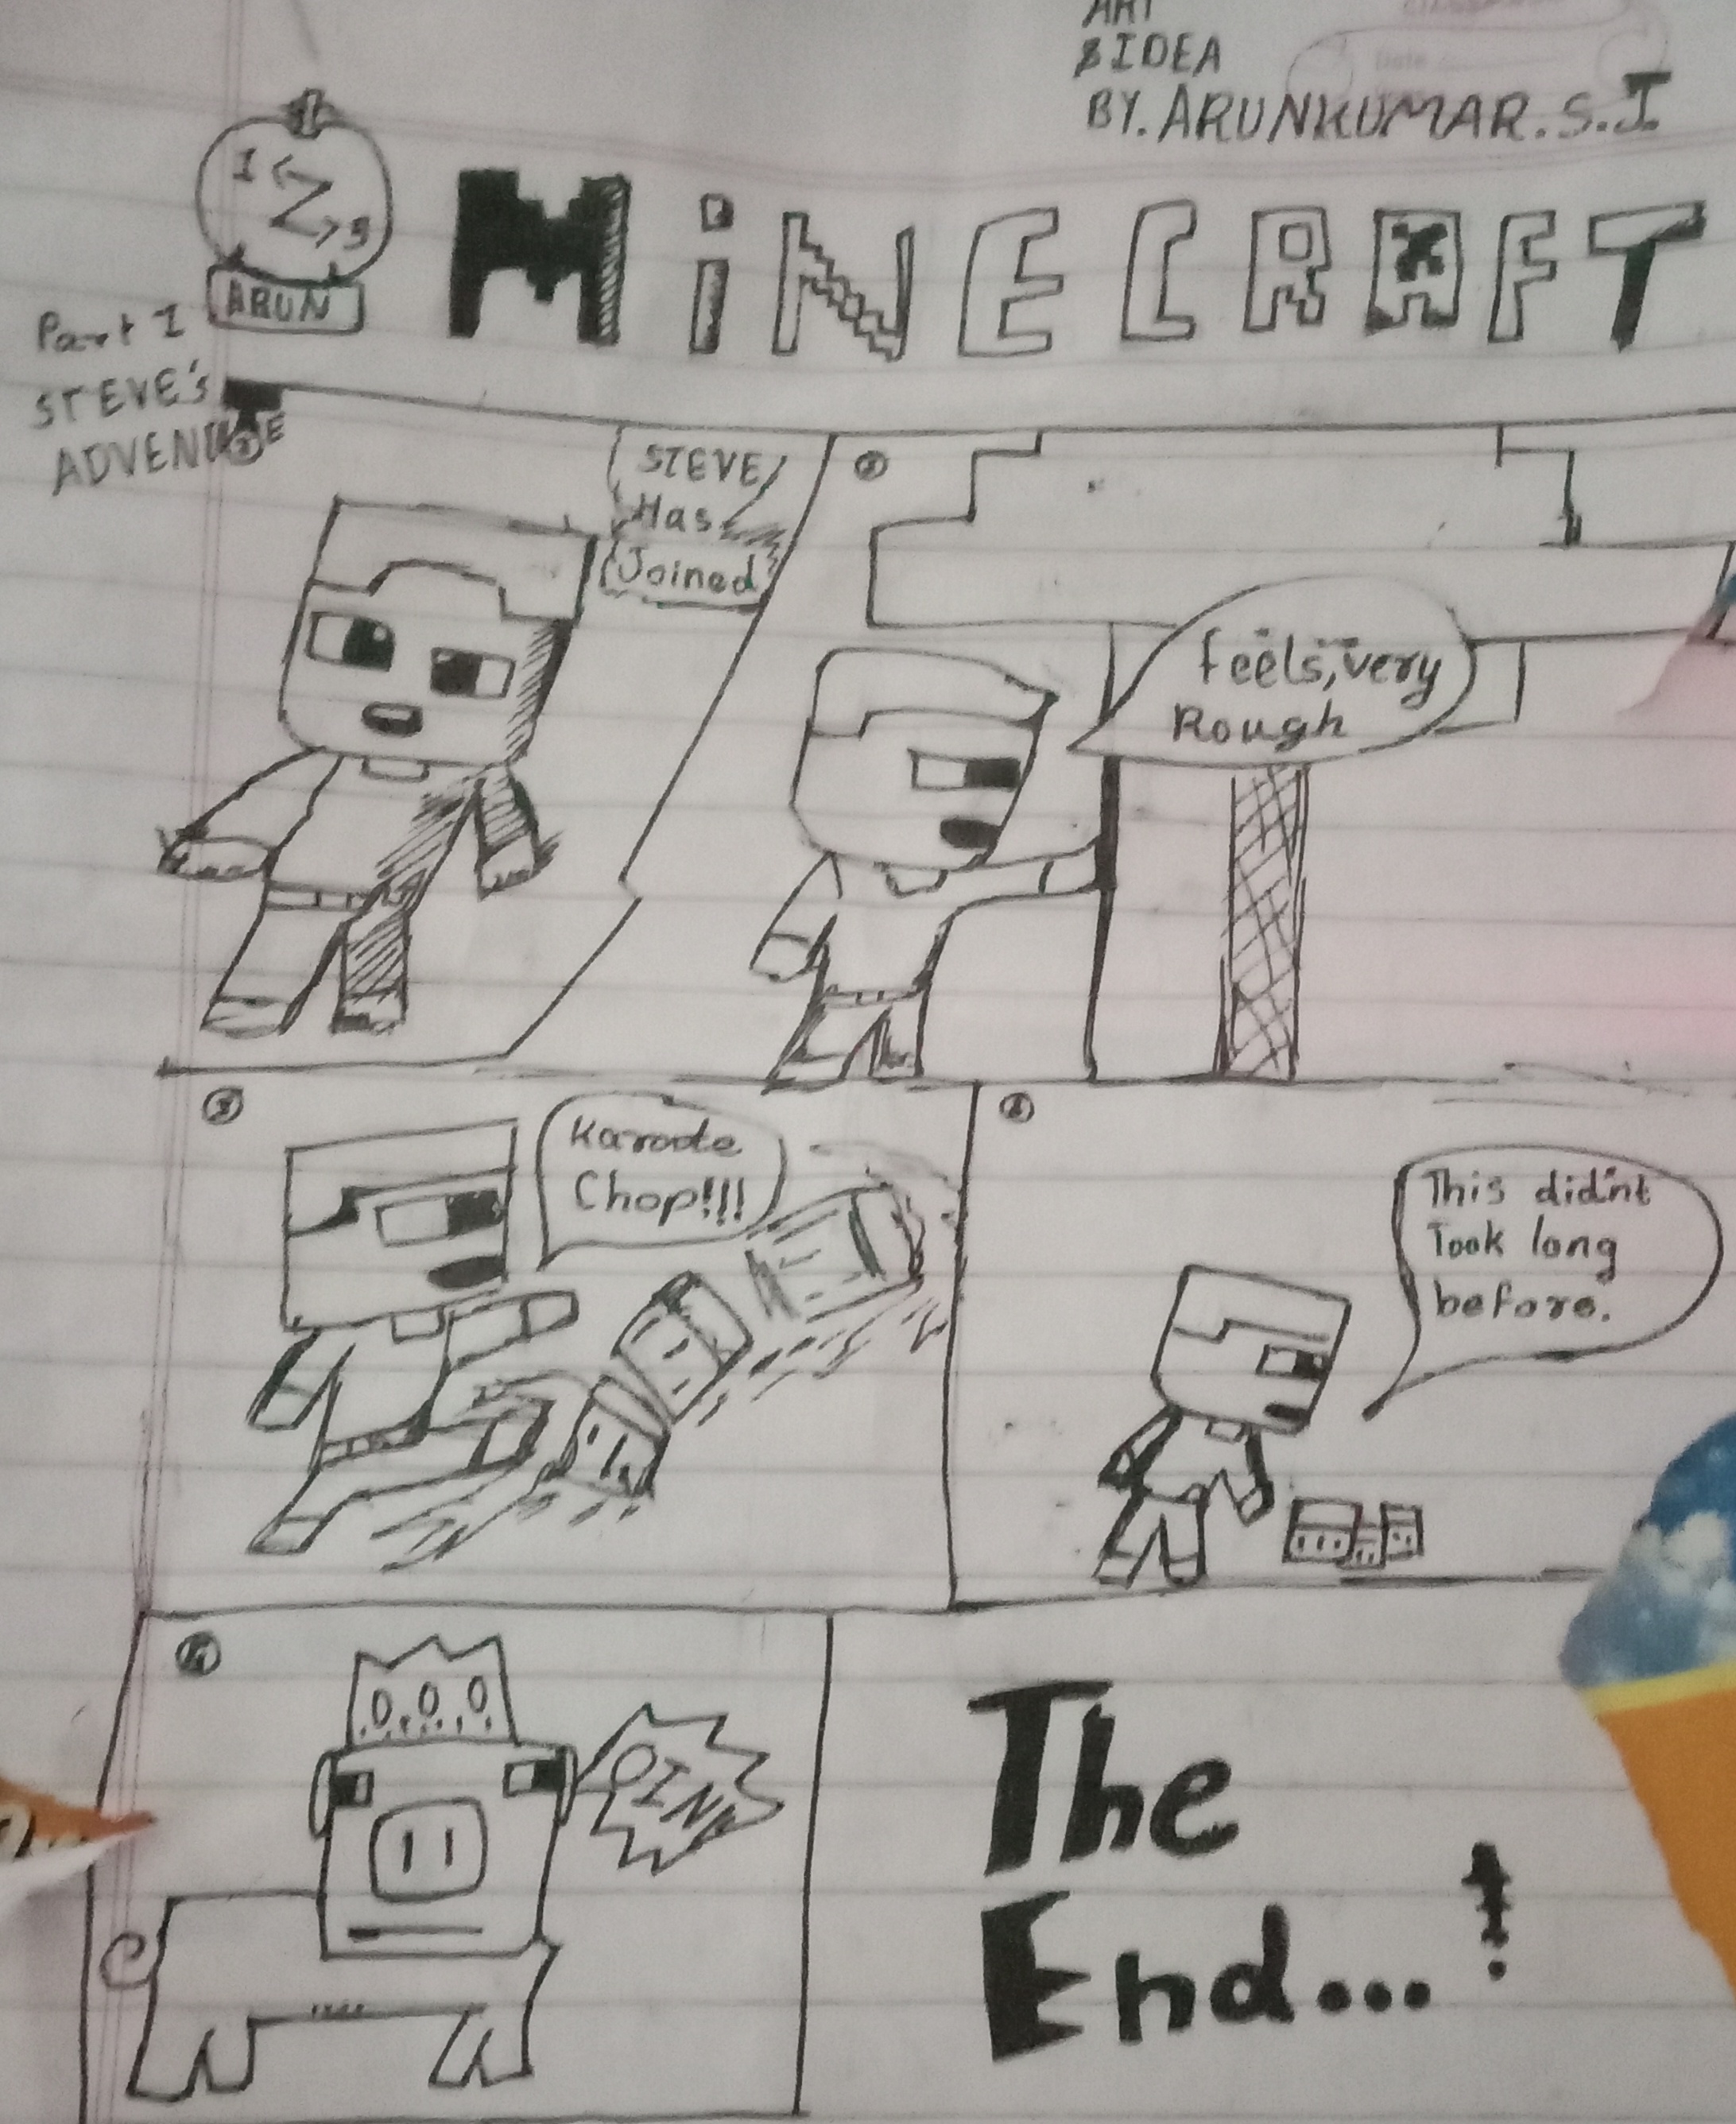 ART
&IDEA
BY. ARUNKUMAR.S.I
1 Z 3
ARUN
MiNECRAFT
Part 1
STEVE'S
ADVENTURE
STEVE
Has
Joined
②
feels, very
Rough
③
Karoote
Chop!!!
This didn't
Took long
before.
OINK
The
End...!